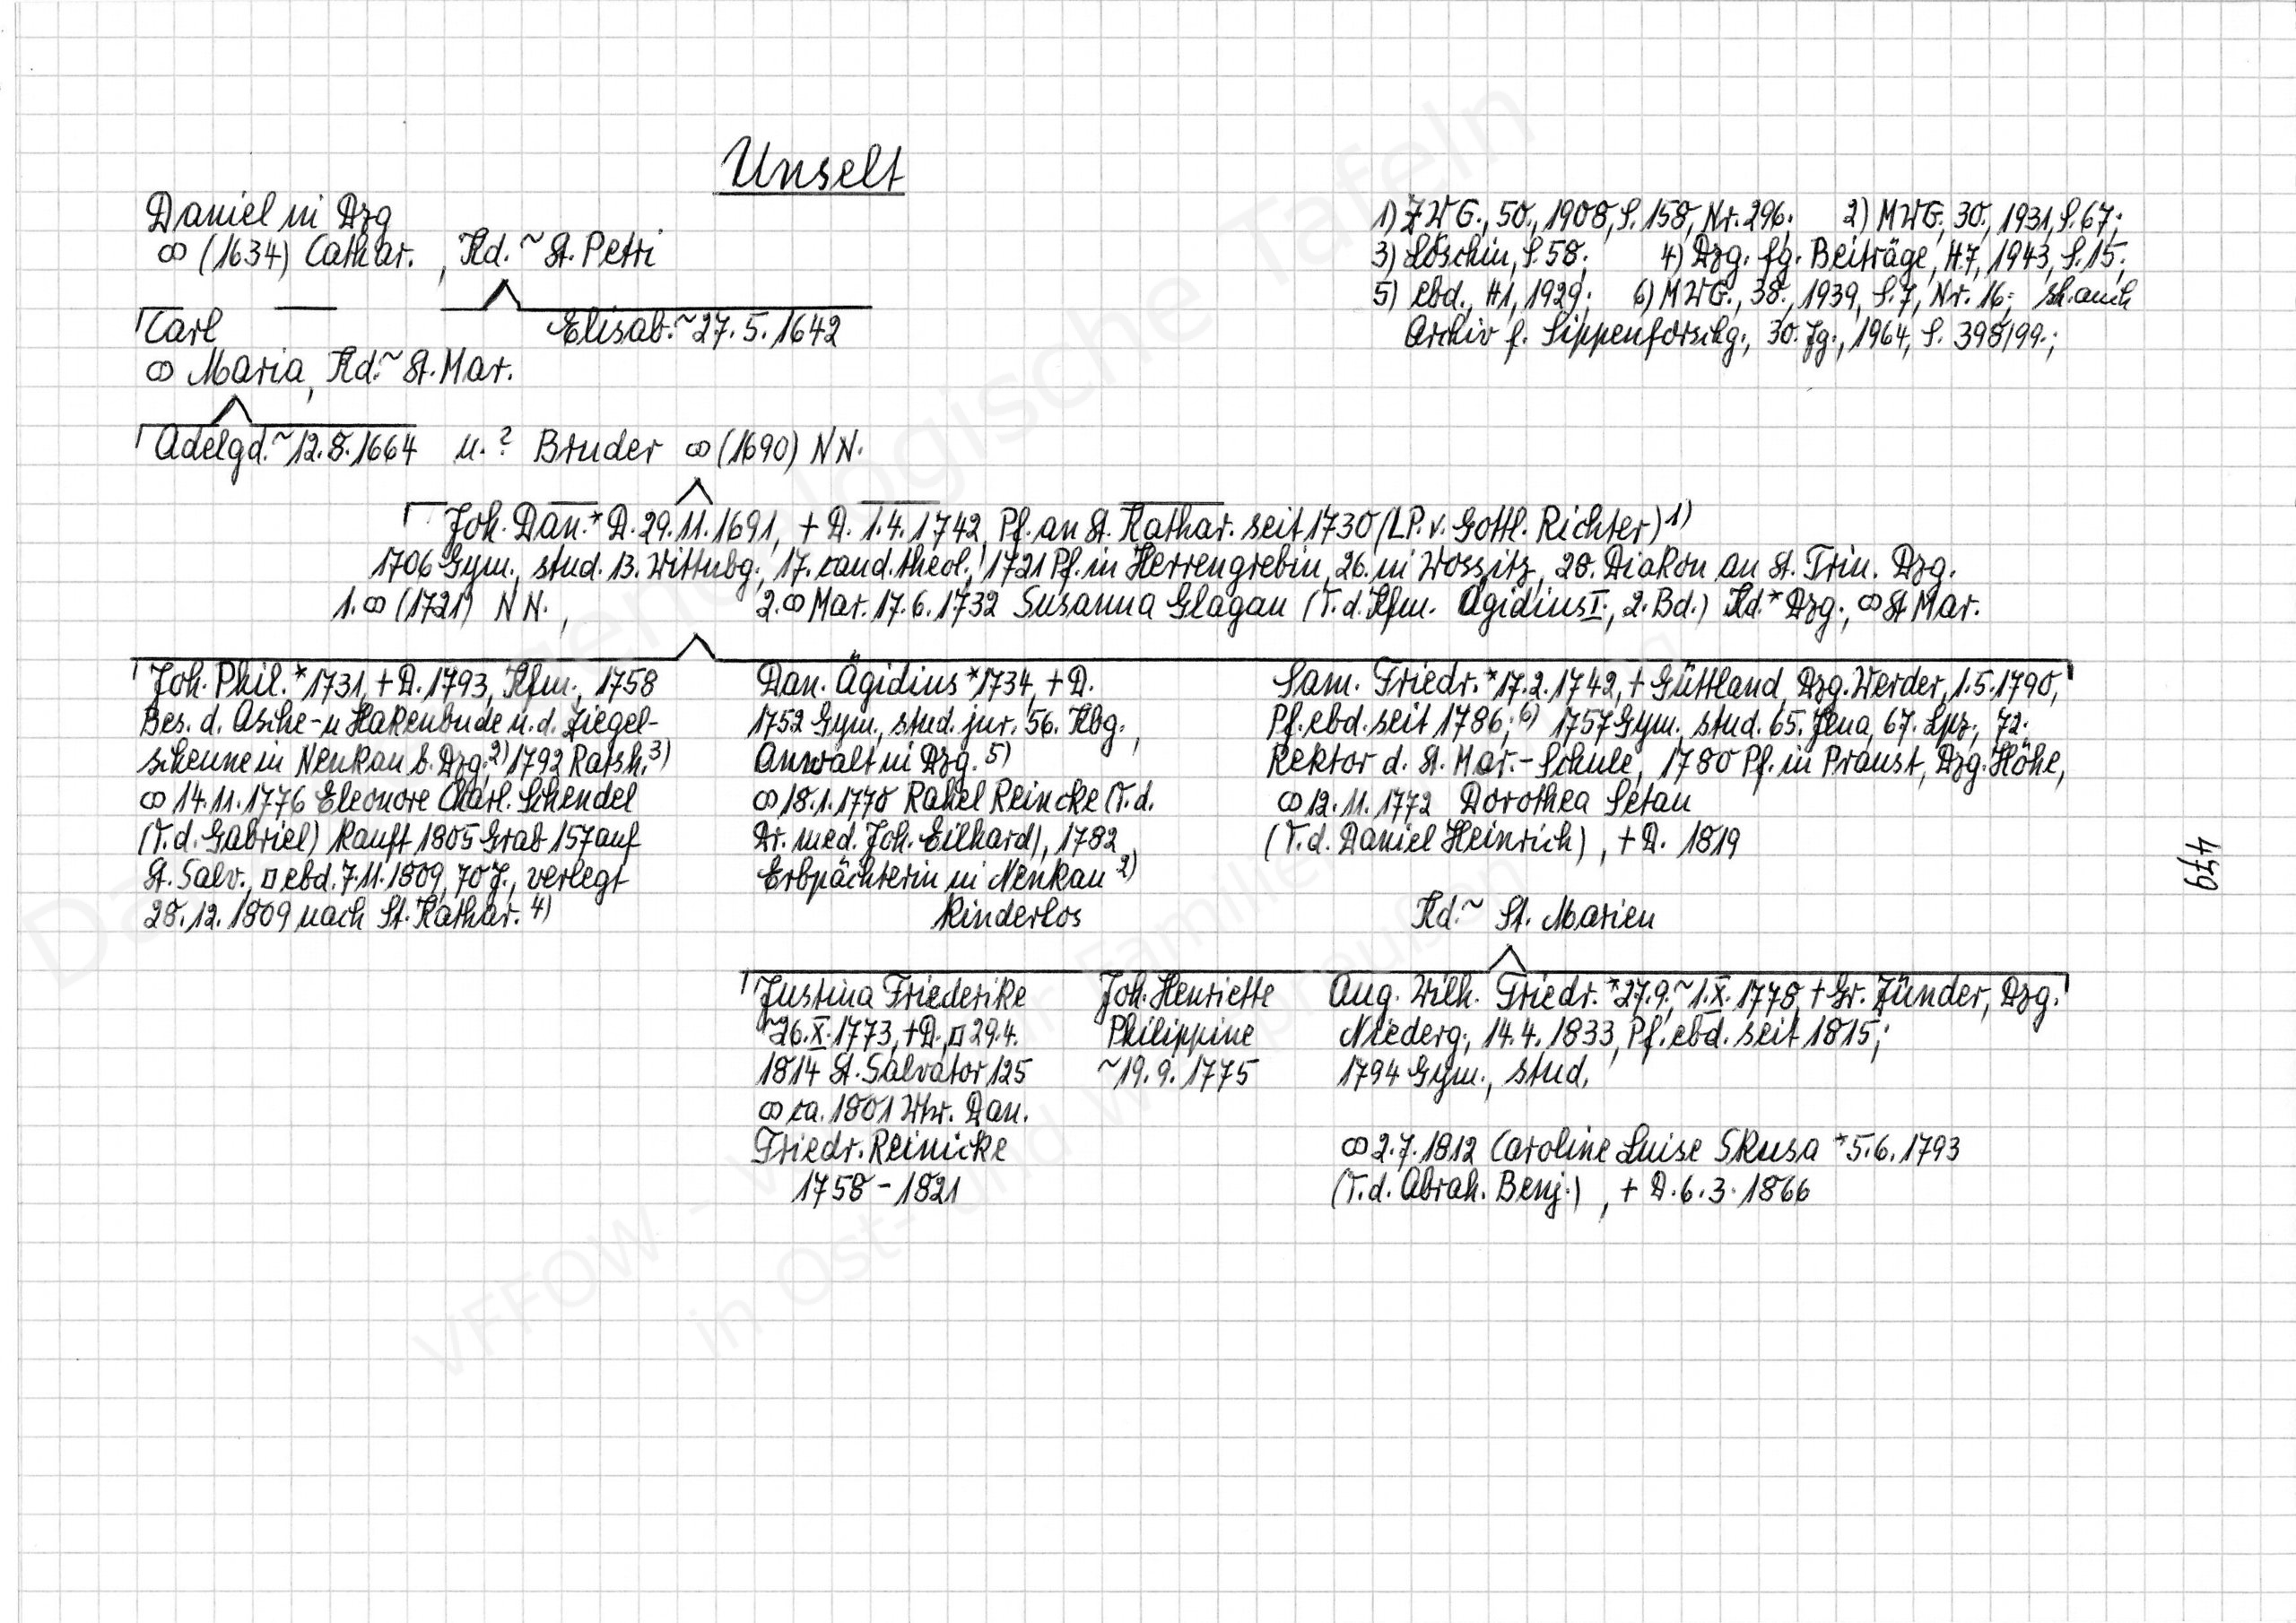 Unselt
Daniel in Dzg
∞ (1634) Cathar. , Kd. ~ St. Petri
1) ZWG., 50., 1908, S. 158, Nr. 296; 2) MWG., 30., 1931, S. 67;
3) Löschin, S. 58; 4) Dzg. fg. Beiträge, H7, 1943, S. 15;
5) ebd., H1, 1929; 6) MWG., 38., 1939, S. 7, Nr. 16; sh. auch
Archiv f. Sippenforschg., 30. Jg., 1964, S. 398/99.;
Carl Elisab. ~ 27.5.1642
∞ Maria, Kd. ~ St. Mar.
Adelgd. ~ 12.8.1664 u. ? Bruder ∞ (1690) NN.
Joh. Dan. * D. 29.11.1691, + D. 1.4.1742, Pf. an St. Kathar. seit 1730 (LP. v. Gottl. Richter) 1)
1706 Gym., stud. 13. Wittnbg., 17. cand. theol., 1721 Pf. in Herrengrebin, 26. in Wossitz, 28. Diakon an St. Trin. Dzg.
1. ∞ (1721) NN. , 2. ∞ Mar. 17.6.1732 Susanna Glagau (T. d. Kfm. Ägidius I., 2. Bd.) Kd. * Dzg., ∞ St Mar.
Joh. Phil. * 1731, + D. 1793, Kfm., 1758
Bes. d. Asche- u Hakenbude u. d. Ziegel-
scheune in Nenkau b. Dzg. 2) 1792 Ratsh. 3)
∞ 14.11.1776 Eleonore Charl. Schendel
(T. d. Gabriel) kauft 1805 Grab 157 auf
St. Salv., □ ebd. 7.11.1809, 70 J., verlegt
28.12.1809 nach St. Kathar. 4)
Dan. Ägidius * 1734, + D.
1752 Gym., stud. jur. 56. Kbg.,
Anwalt in Dzg. 5)
∞ 18.1.1770 Rahel Reincke (T. d.
Dr. med. Joh. Eilhard), 1782
Erbpächterin in Nenkau 2)
kinderlos
Sam. Friedr. * 17.2.1742, + Güttland, Dzg. Werder, 1.5.1790,
Pf. ebd. seit 1786; 6) 1757 Gym., stud. 65. Jena, 67. Lpz., 72.
Rektor d. St. Mar.-Schule, 1780 Pf. in Praust, Dzg. Höhe,
∞ 12.11.1772 Dorothea Setau
(T. d. Daniel Heinrich) , + D. 1819
Kd. ~ St. Marien
Justina Friederike
~ 26.X.1773, + D., □ 29.4.
1814 St. Salvator 125
∞ ca. 1801 Wwr. Dan.
Friedr. Reinicke
1758 - 1821
Joh. Henriette
Philippine
~ 19.9.1775
Aug. Wilh. Friedr. * 27.9. ~ 1.X.1778, + Gr. Zünder, Dzg.
Niederg., 14.4.1833, Pf. ebd. seit 1815;
1794 Gym., stud.
∞ 2.7.1812 Caroline Luise Skusa * 5.6.1793
(T. d. Abrah. Benj.) , + D. 6.3.1866
479